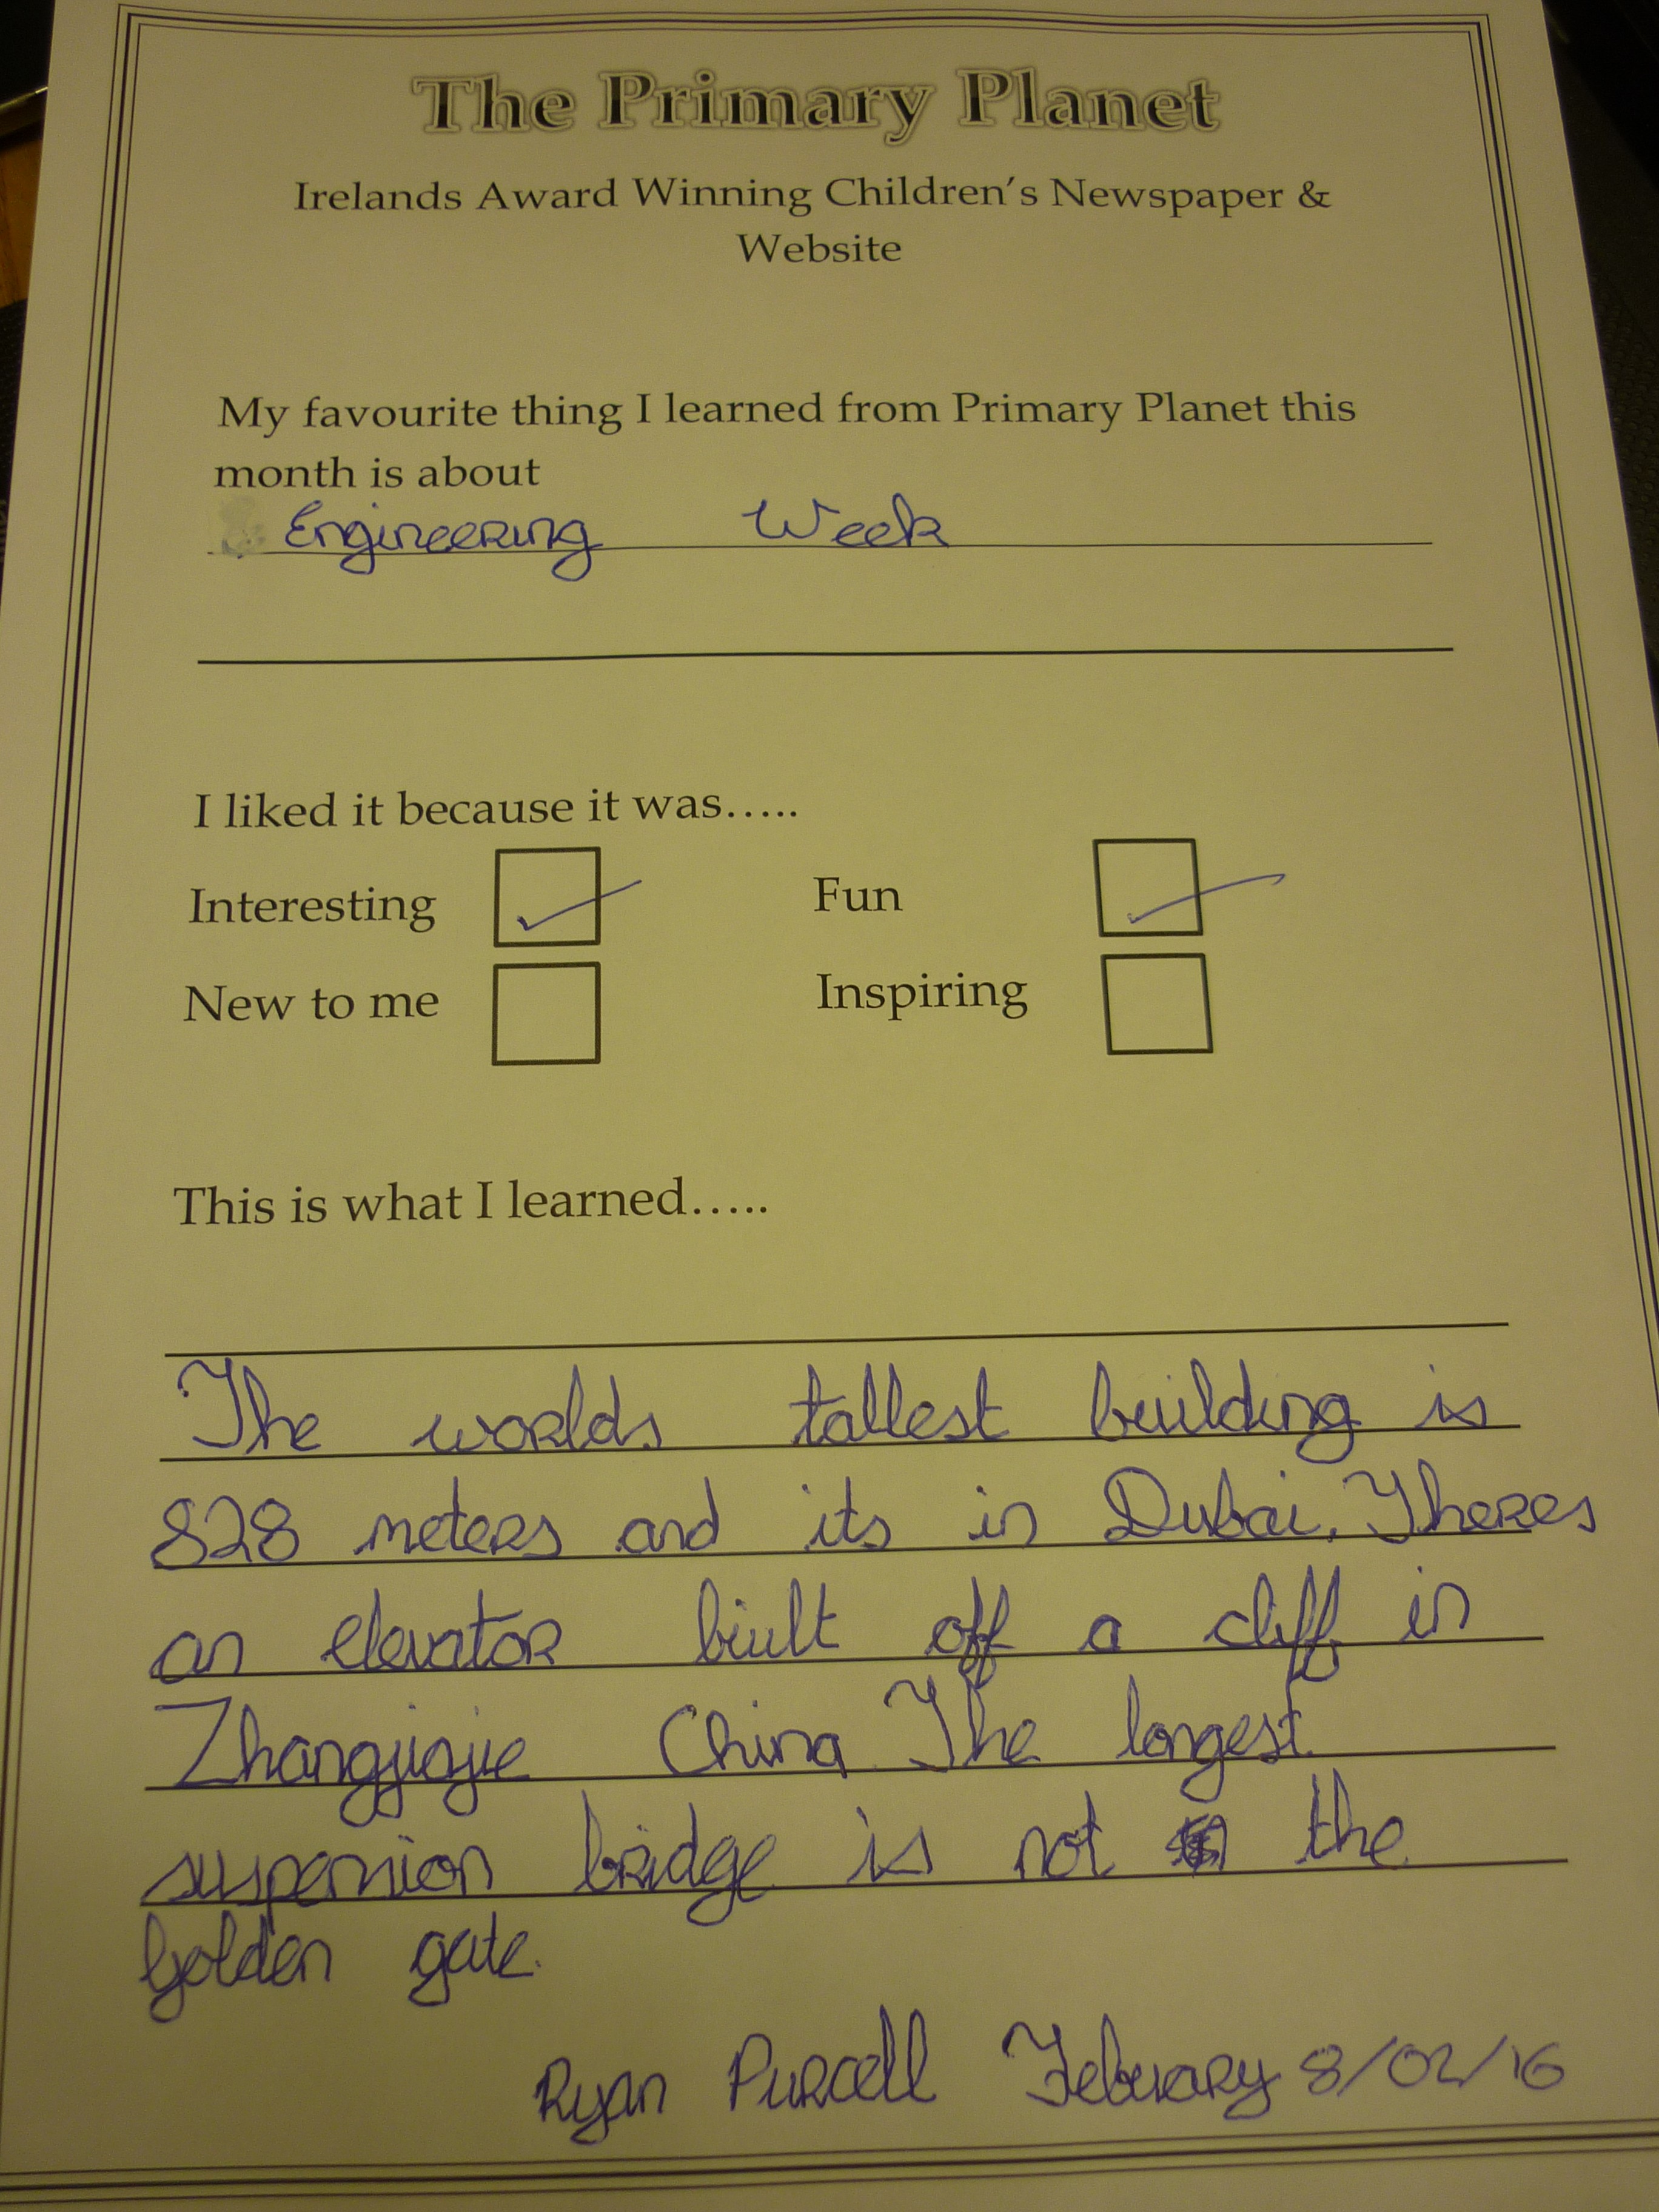 The Primary Planet
Irelands Award Winning Children's Newspaper &
Website
My favourite thing I learned from Primary Planet this
month is about
Engineering Week
I liked it because it was.....
Interesting Fun
New to me Inspiring
This is what I learned.....
The worlds tallest building is
828 meters and its in Dubai. Theres
an elevator built off a cliff in
Zhangjiajie China. The longest
suspension bridge is not the
Golden gate.
Ryan Purcell February 8/02/16